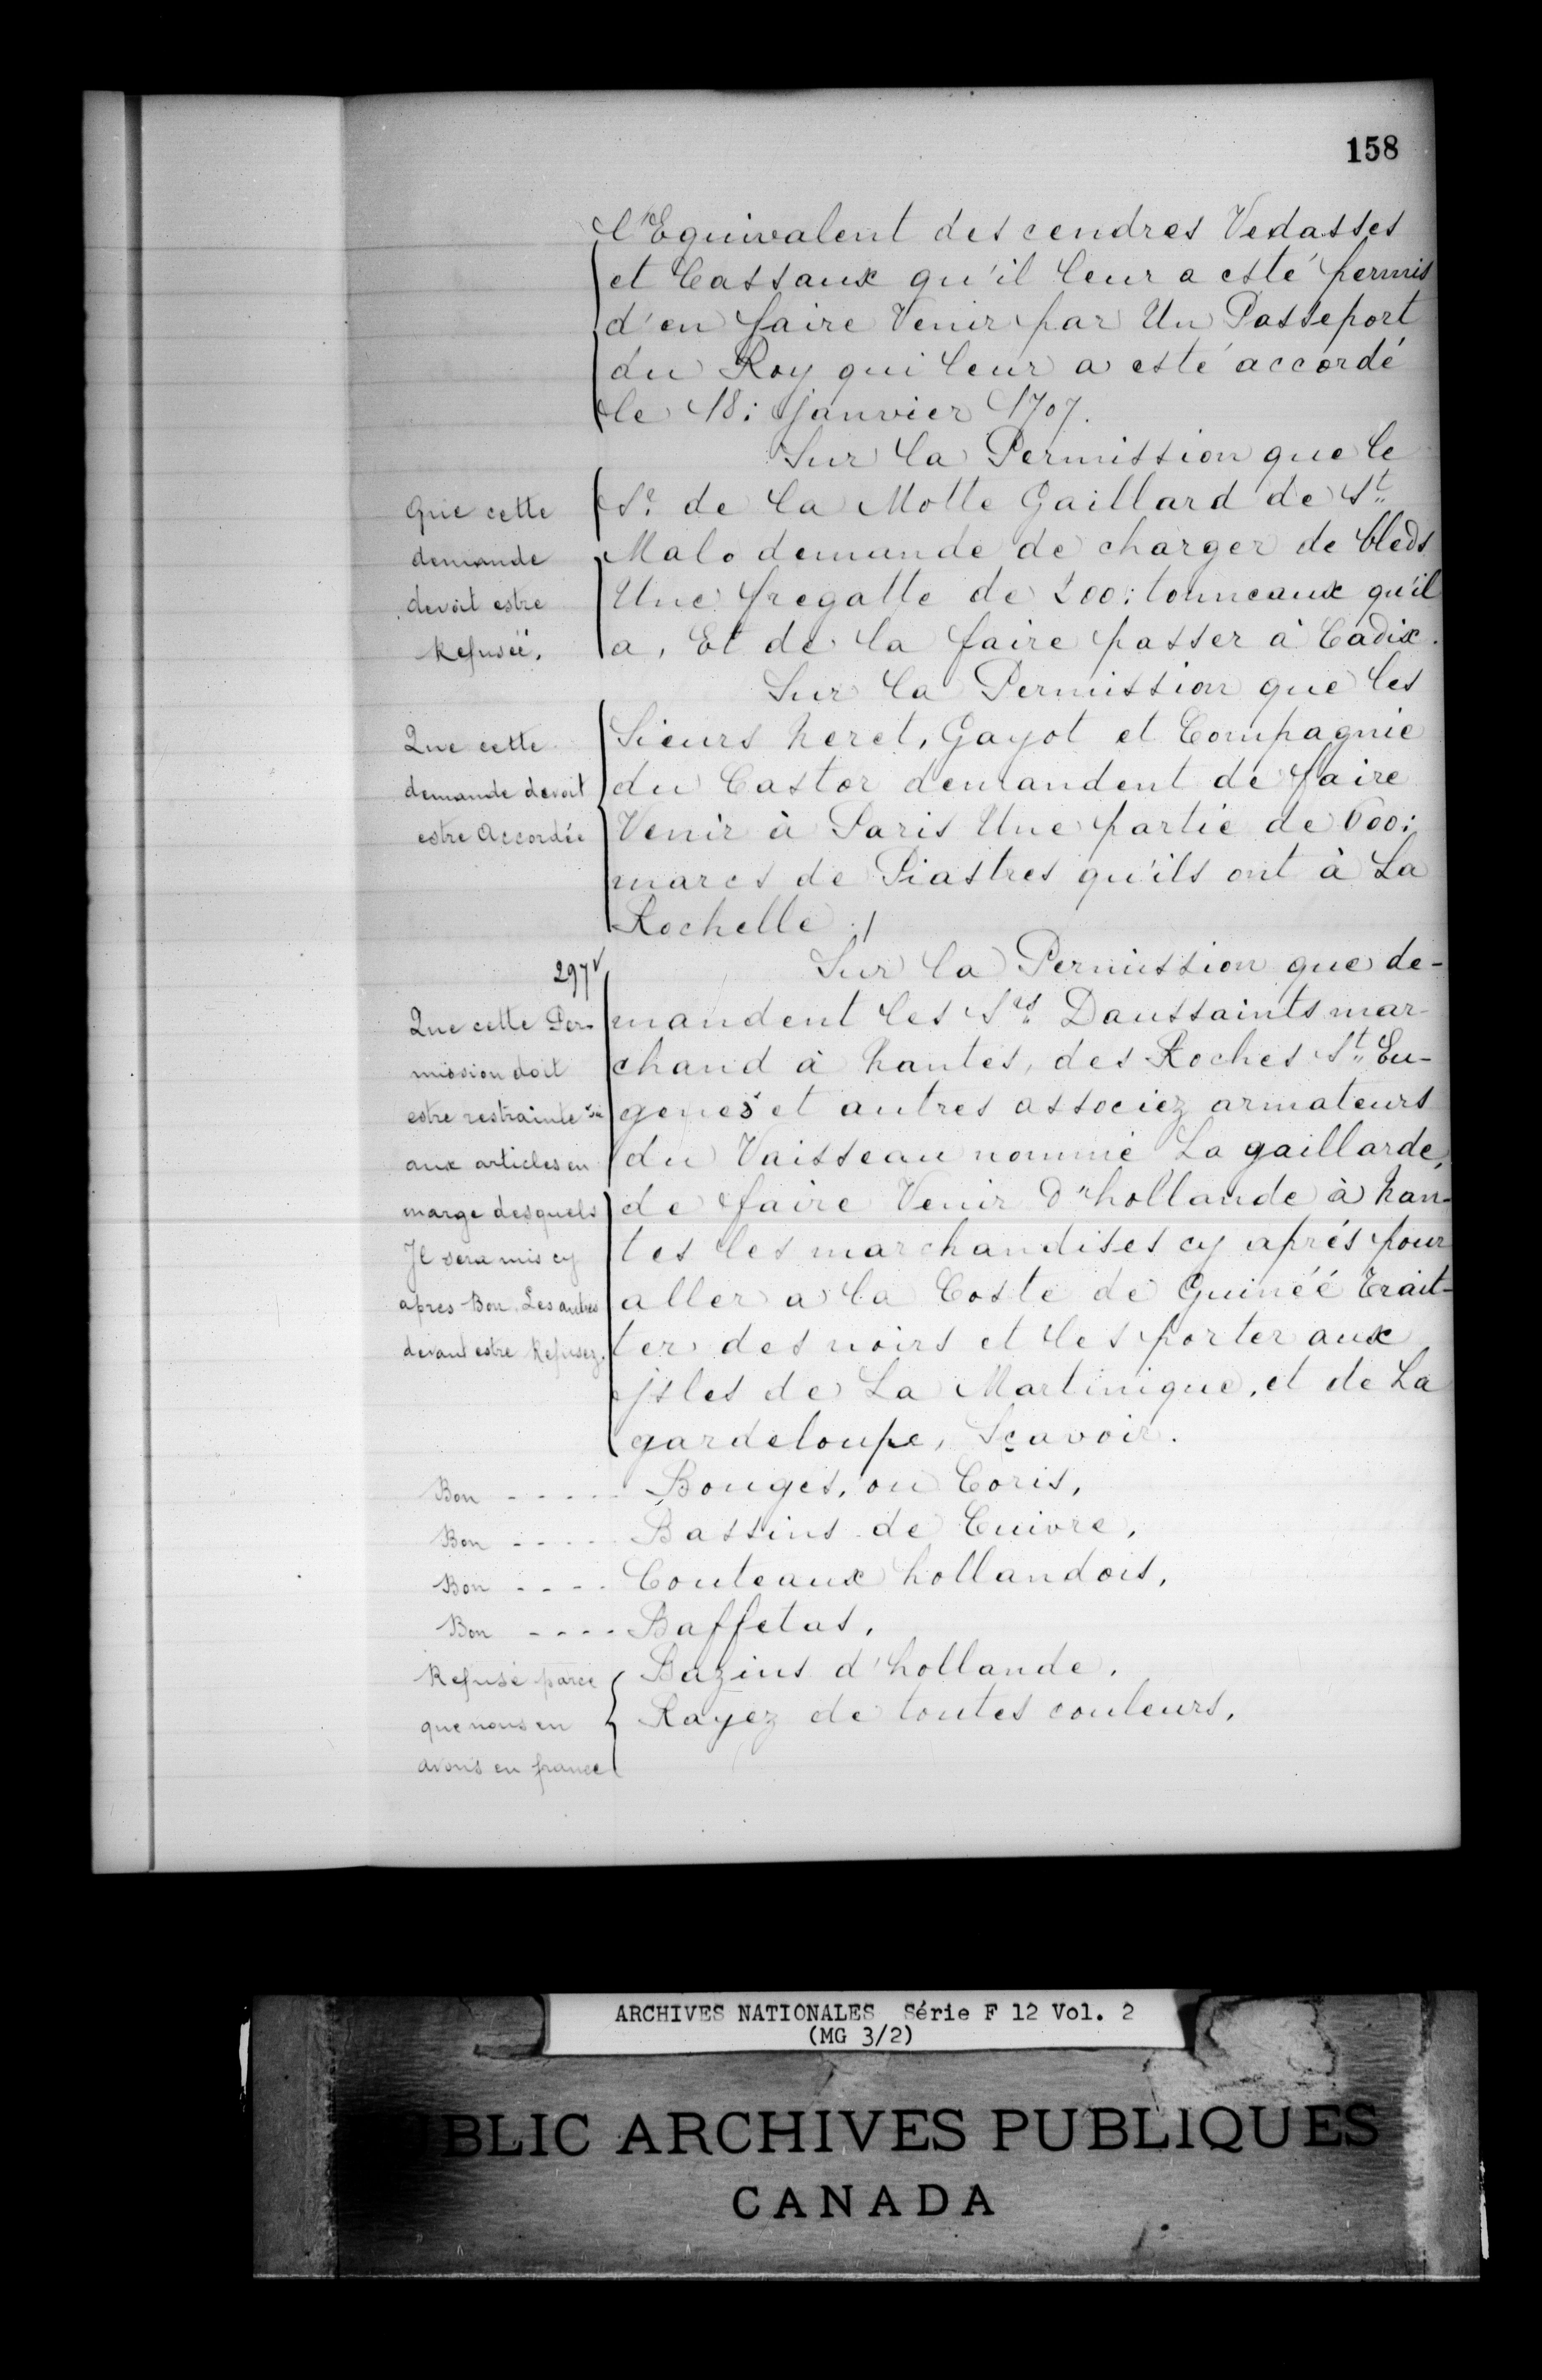 158
l'Equivalent des cendres Vedasses
et Cassaux qu'il leur a esté permis
d'en faire Venir par Un Passeport
du Roy qui leur a esté accordé
le 18: janvier 1707.
Sur la Permission que le
Sr. de la Motte Gaillard de St.
Malo demande de charger de bleds
Une fregatte de 200: tonneaux qu'il
a, Et de la faire passer à Cadix.
Que cette
demande
devoit estre
Refuséé.
Sur la Permission que les
Sieurs Neret, Gayot et Compagnie
du Castor demandent de faire
Venir à Paris Une partie de 600:
marcs de Piastres qu'ils ont à La
Rochelle./
Que cette
demande devoit
estre Accordée
297v
Sur la Permission que de-
mandent les Srs. Daussaints mar-
chand à Nantes, des Roches St. Eu-
genes et autres associez armateurs
du Vaisseau nommé La gaillarde,
de faire Venir d'hollande à Nan-
tes les marchandises cy aprés pour
aller a la Coste de Guinéé Trait-
ter des noirs et les porter aux
jsles de La Martinique, et de La
gardeloupe, Sçavoir.
Que cette Per-
mission doit
estre restrainte
aux articles en
marge desquels
Il sera mis cy
apres Bon. Les autres
devant estre Refusez.
Bon - - - - - Bouges, ou Coris,
Bon - - - - Bassins de Cuivre,
Bon - - - - Couteaux hollandois,
Bon - - - - Baffetas,
Bazins d'hollande,
Rayez de toutes couleurs,
Refusé parce
que nous en
avons en france
ARCHIVES NATIONALES Série F 12 Vol. 2
(MG 3/2)
BLIC ARCHIVES PUBLIQUES
CANADA